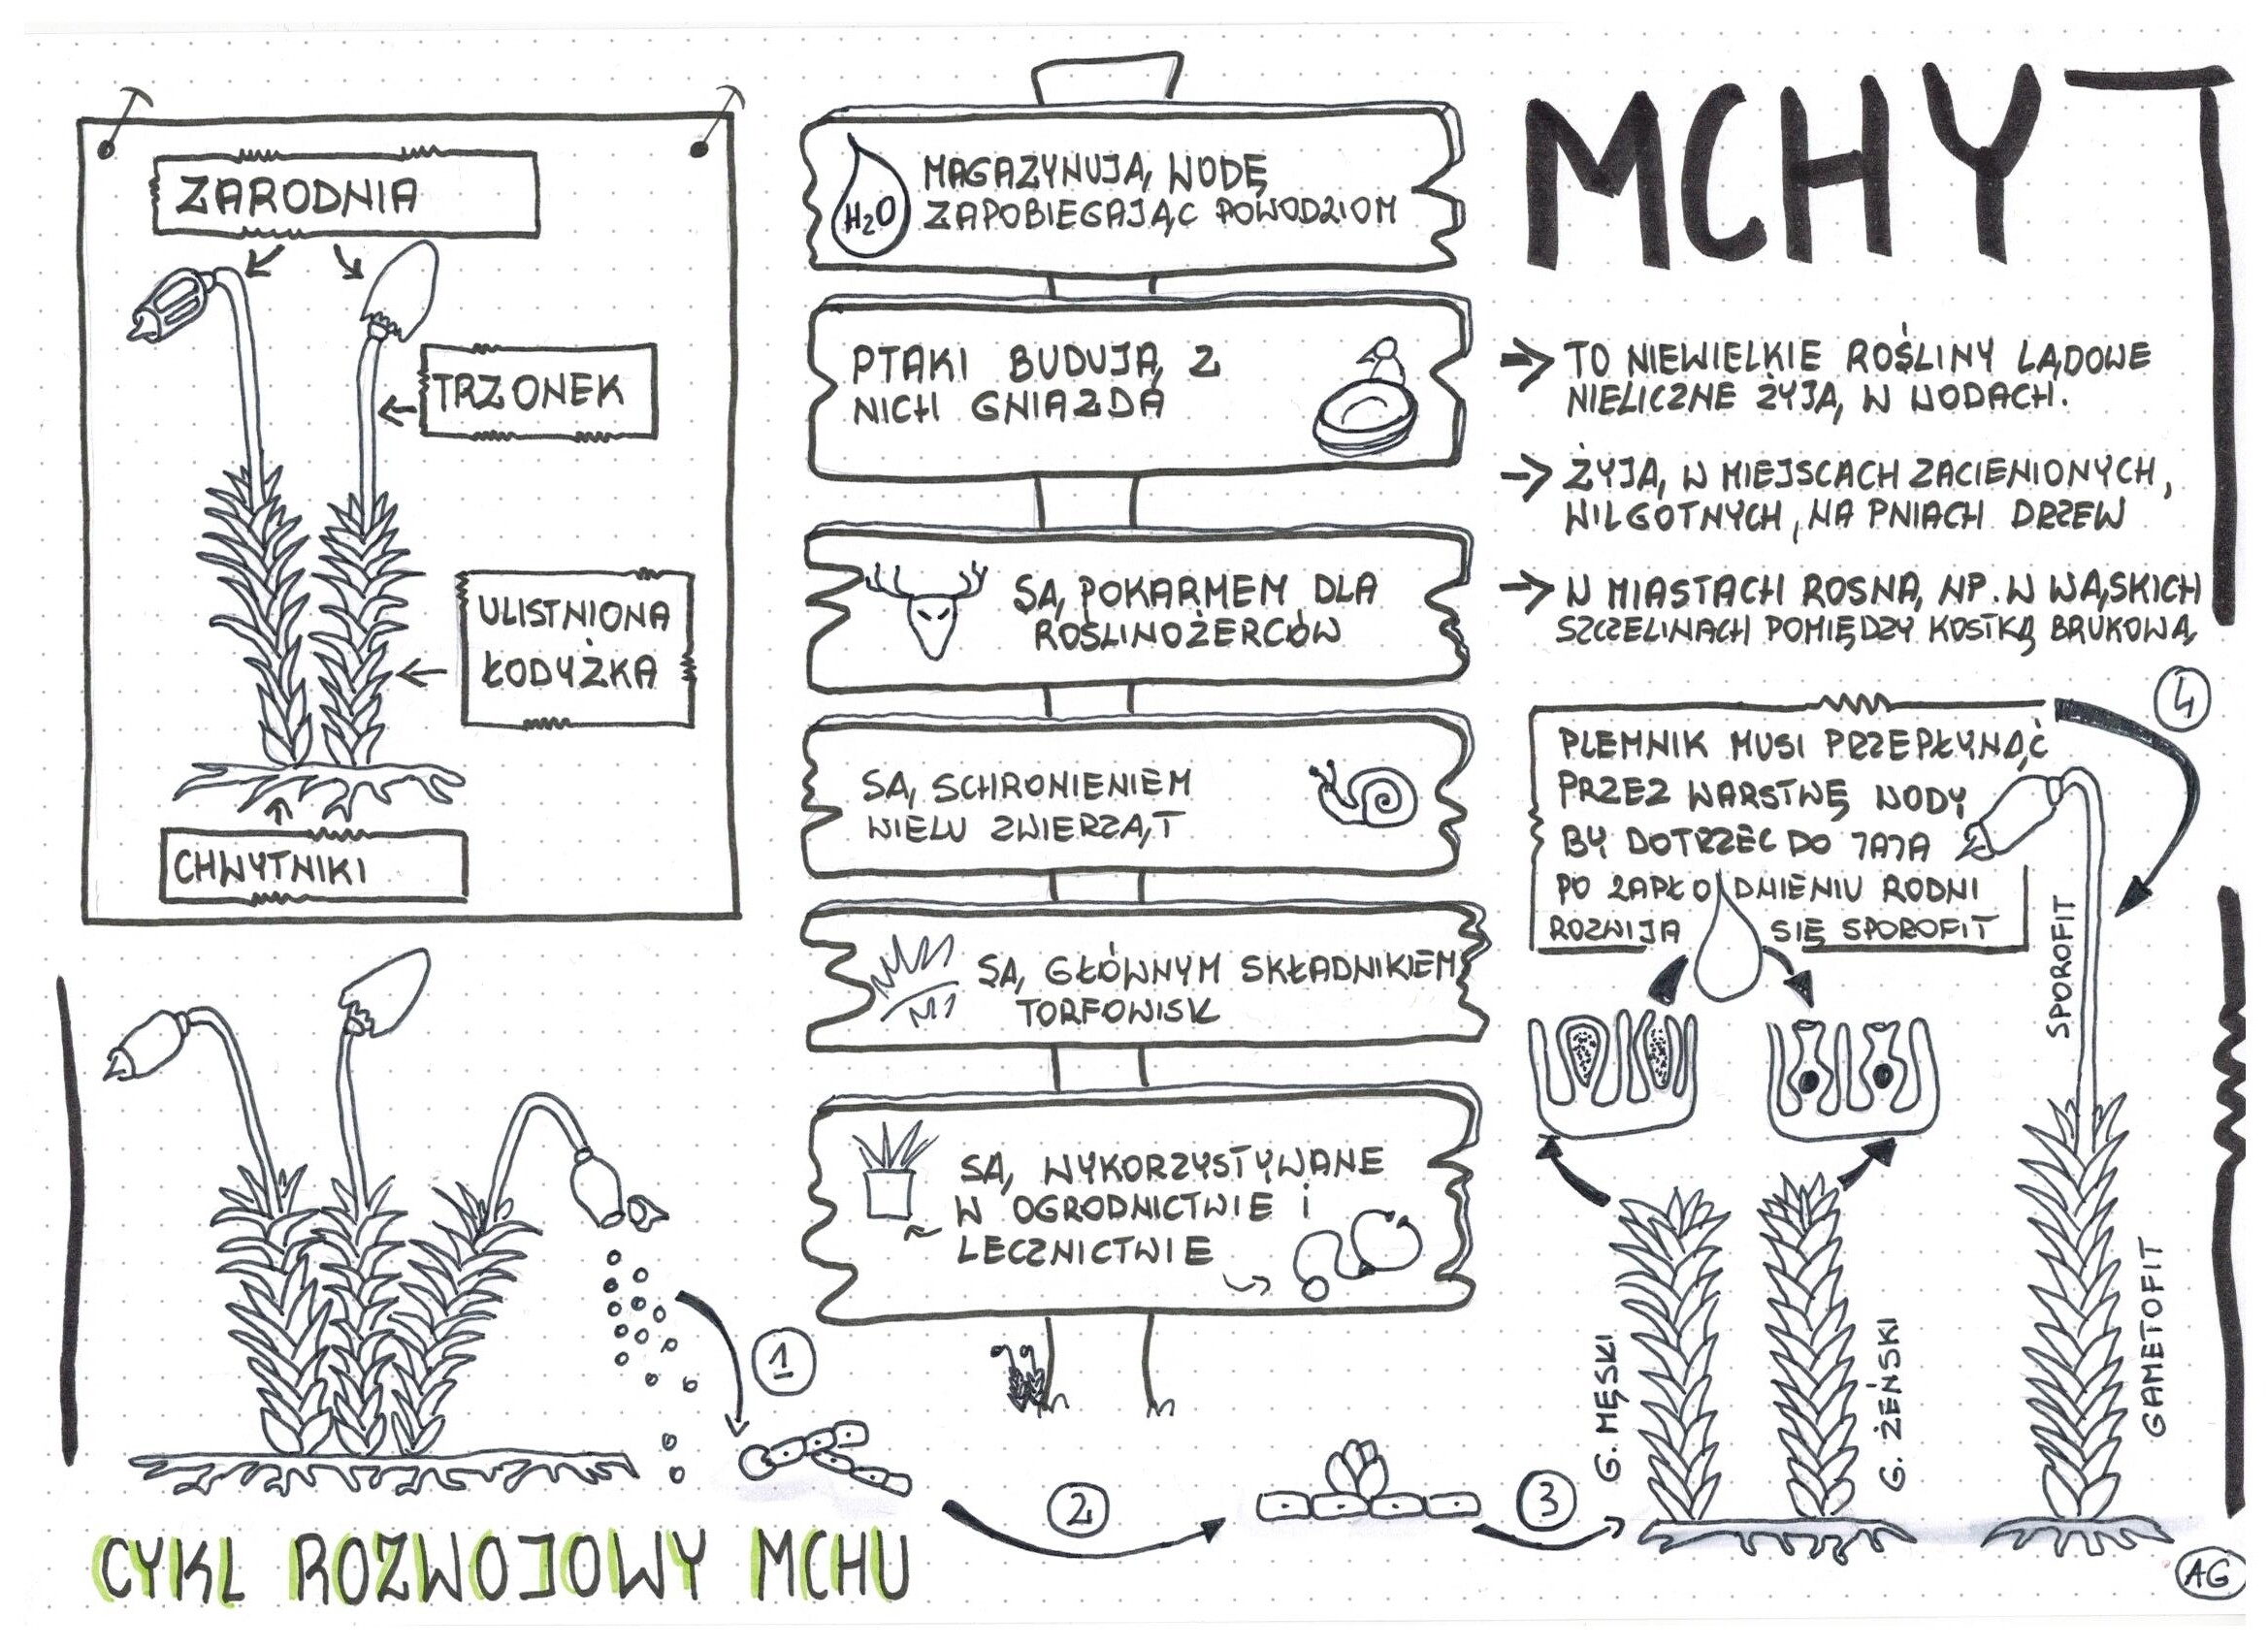 MCHY
ZARODNIA
TRZONEK
ULISTNIONA
ŁODYŻKA
CHWYTNIKI
H2O
MAGAZYNUJĄ WODĘ
ZAPOBIEGAJĄC POWODZIOM
PTAKI BUDUJĄ Z
NICH GNIAZDA
SĄ POKARMEM DLA
ROŚLINOŻERCÓW
SĄ SCHRONIENIEM
WIELU ZWIERZĄT
SĄ GŁÓWNYM SKŁADNIKIEM
TORFOWISK
SĄ WYKORZYSTYWANE
W OGRODNICTWIE i
LECZNICTWIE
→ TO NIEWIELKIE ROŚLINY LĄDOWE
NIELICZNE ŻYJĄ W WODACH.
→ ŻYJĄ W MIEJSCACH ZACIENIONYCH,
WILGOTNYCH, NA PNIACH DRZEW
→ W MIASTACH ROSNĄ NP. W WĄSKICH
SZCZELINACH POMIĘDZY KOSTKĄ BRUKOWĄ
PLEMNIK MUSI PRZEPŁYNĄĆ
PRZEZ WARSTWĘ WODY
BY DOTRZEĆ DO JAJA
PO ZAPŁODNIENIU RODNI
ROZWIJA SIĘ SPOROFIT
4
SPOROFIT
GAMETOFIT
G. MĘSKI
G. ŻEŃSKI
1
2
3
CYKL ROZWOJOWY MCHU
AG